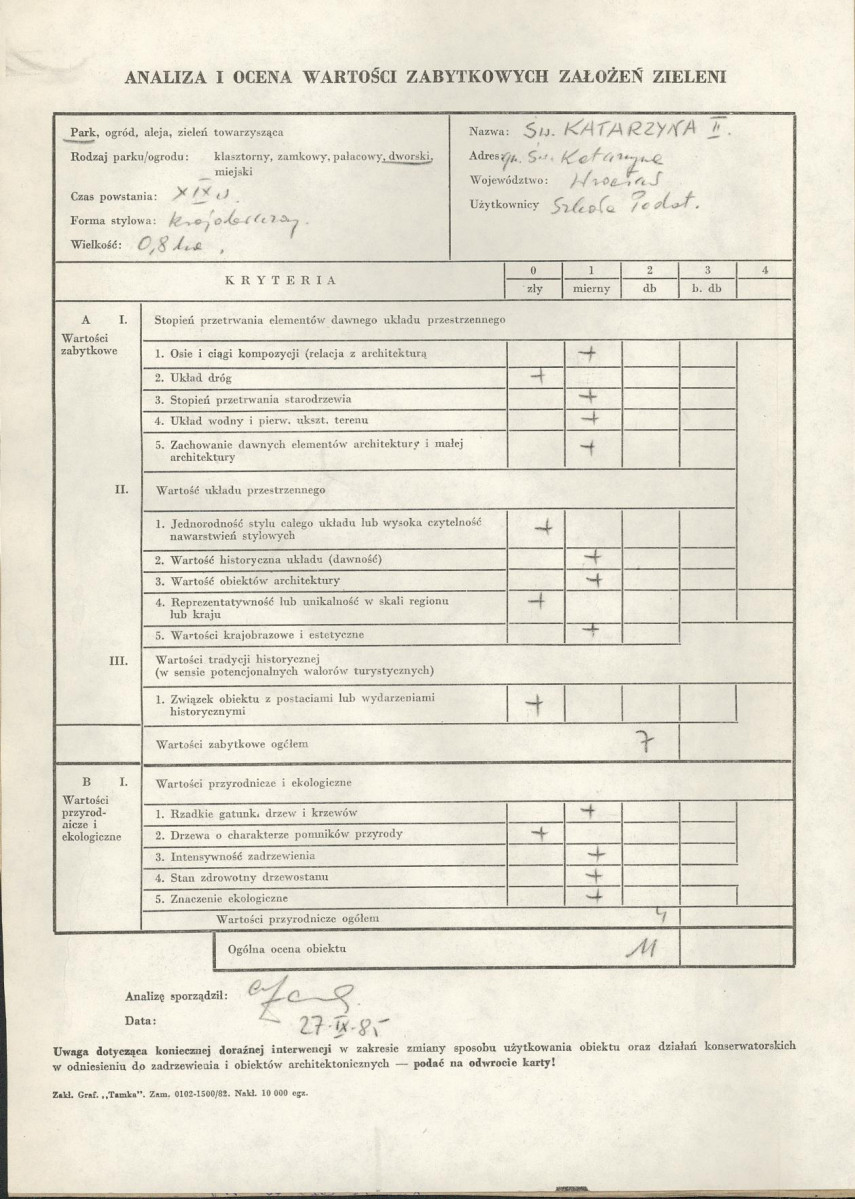 ANALIZA I OCENA WARTOŚCI ZABYTKOWYCH ZAŁOŻEŃ ZIELENI
Park, ogród, aleja, zieleń towarzysząca
Rodzaj parku/ogrodu: klasztorny, zamkowy, pałacowy, dworski,
miejski
Czas powstania: XIX w.
Forma stylowa: krajobrazowy.
Wielkość: 0,8 ha,
Nazwa: Św. KATARZYNA II.
Adres: gm. Św. Katarzyna
Województwo: Wrocław
Użytkownicy Szkoła Podst.
KRYTERIA
0 1 2 3 4
zły mierny db b. db
A I. Stopień przetrwania elementów dawnego układu przestrzennego
Wartości
zabytkowe
1. Osie i ciągi kompozycji (relacja z architekturą +
2. Układ dróg +
3. Stopień przetrwania starodrzewia +
4. Układ wodny i pierw. ukszt. terenu +
5. Zachowanie dawnych elementów architektury i małej +
architektury
II. Wartość układu przestrzennego
1. Jednorodność stylu całego układu lub wysoka czytelność +
nawarstwień stylowych
2. Wartość historyczna układu (dawność) +
3. Wartość obiektów architektury +
4. Reprezentatywność lub unikalność w skali regionu +
lub kraju
5. Wartości krajobrazowe i estetyczne +
III. Wartości tradycji historycznej
(w sensie potencjonalnych walorów turystycznych)
1. Związek obiektu z postaciami lub wydarzeniami +
historycznymi
Wartości zabytkowe ogółem 7
B I. Wartości przyrodnicze i ekologiczne
Wartości
przyrod-
nicze i
ekologiczne
1. Rzadkie gatunki drzew i krzewów +
2. Drzewa o charakterze pomników przyrody +
3. Intensywność zadrzewienia +
4. Stan zdrowotny drzewostanu +
5. Znaczenie ekologiczne +
Wartości przyrodnicze ogółem 4
Ogólna ocena obiektu 11
Analizę sporządził:
Data: 27·IX·85
Uwaga dotycząca koniecznej doraźnej interwencji w zakresie zmiany sposobu użytkowania obiektu oraz działań konserwatorskich
w odniesieniu do zadrzewienia i obiektów architektonicznych — podać na odwrocie karty!
Zakł. Graf. „Tamka”. Zam. 0102-1500/82. Nakł. 10 000 egz.